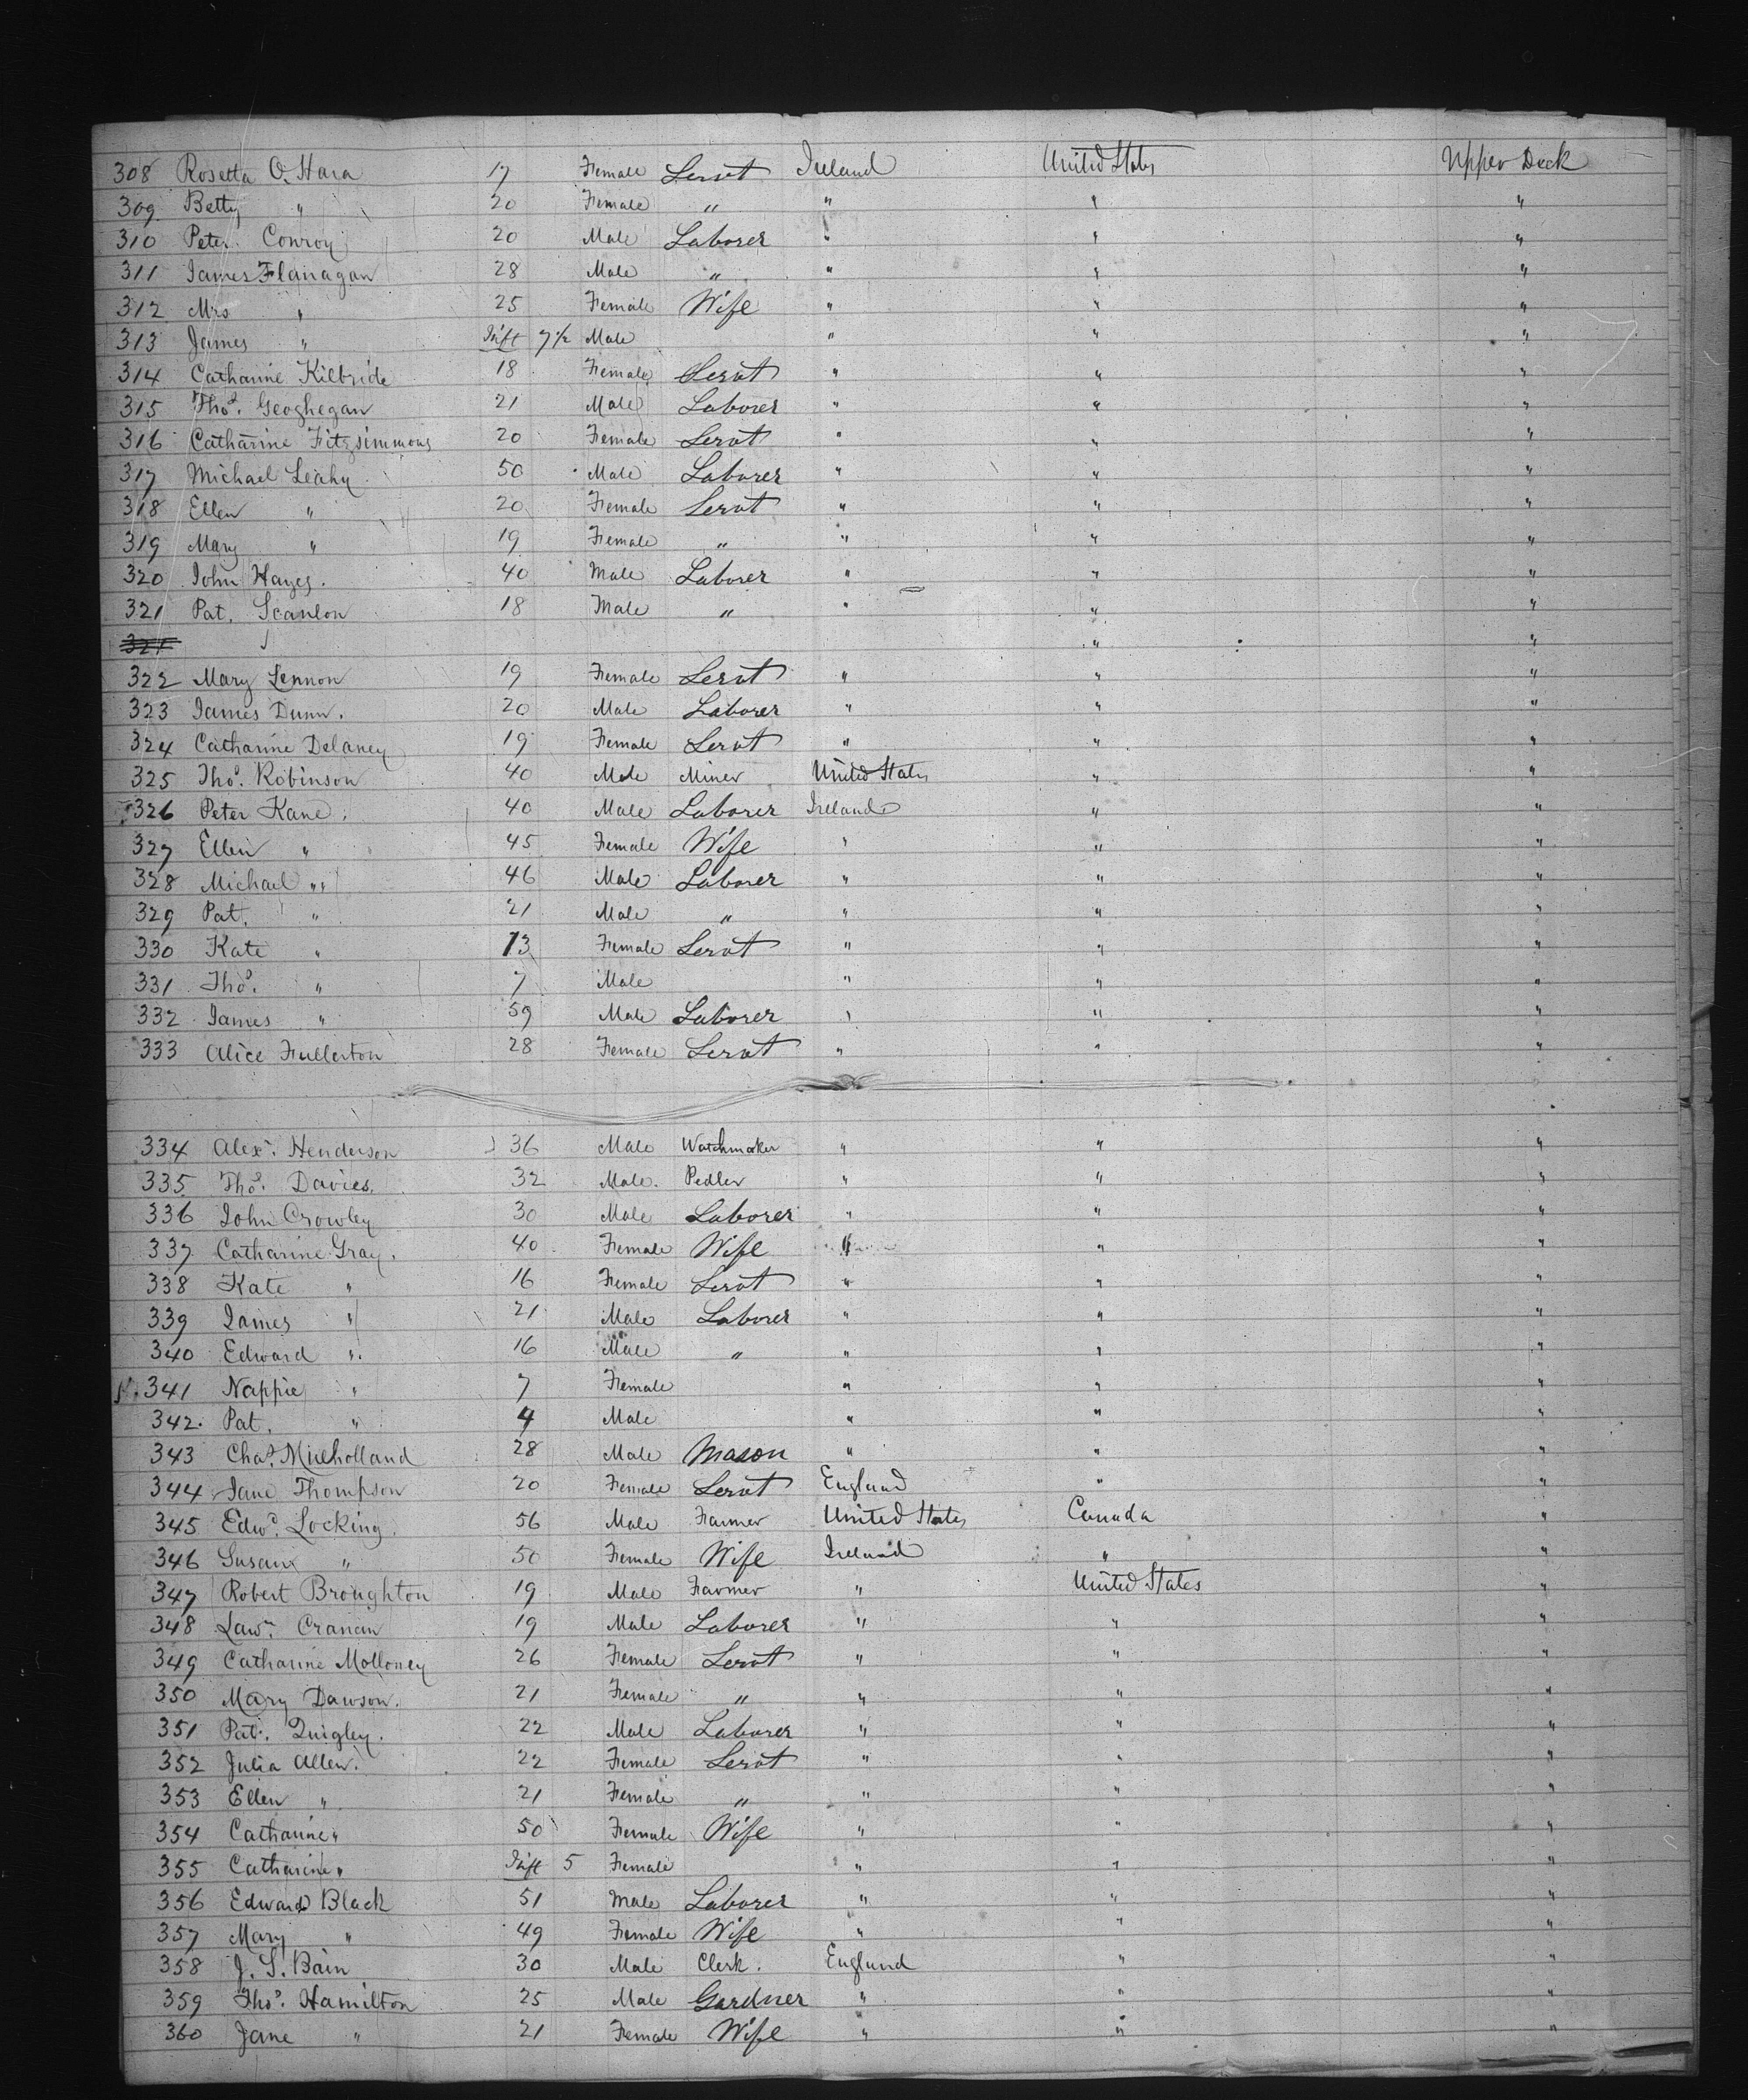 308 Rosetta O.Hara 17 Female Servt Ireland United States Upper Deck
309 Betty " 20 Female " " " "
310 Peter Conroy 20 Male Laborer " " "
311 James Flanagan 28 Male " " " "
312 Mrs " 25 Female Wife " " "
313 James " Inft 7 1/2 Male " " "
314 Catharine Kilbride 18 Female Servt " " "
315 Thos. Geoghegan 21 Male Laborer " " "
316 Catharine Fitzsimmons 20 Female Servt " " "
317 Michael Leahy 50 Male Laborer " " "
318 Ellen " 20 Female Servt " " "
319 Mary " 19 Female " " " "
320 John Hayes. 40 Male Laborer " " "
321 Pat. Scanlon 18 Male " " " "
321 " "
322 Mary Lennon 19 Female Servt " " "
323 James Dunn. 20 Male Laborer " " "
324 Catharine Delaney 19 Female Servt " " "
325 Thos. Robinson 40 Male Miner United States " "
326 Peter Kane. 40 Male Laborer Ireland " "
327 Ellen " 45 Female Wife " " "
328 Michael " 46 Male Laborer " " "
329 Pat. " 21 Male " " " "
330 Kate " 13 Female Servt " " "
331 Thos. " 7 Male " " "
332 James " 59 Male Laborer " " "
333 Alice Fullerton 28 Female Servt " " "
334 Alexr. Henderson 36 Male Watchmaker " " "
335 Thos. Davies. 32 Male. Pedler " " "
336 John Crowley 30 Male Laborer " " "
337 Catharine Gray. 40 Female Wife " " "
338 Kate " 16 Female Servt " " "
339 James " 21 Male Laborer " " "
340 Edward " 16 Male " " " "
341 Nappie " 7 Female " " "
342. Pat. " 4 Male " " "
343 Chas. Mulholland 28 Male Mason " " "
344 Jane Thompson 20 Female Servt England " "
345 Edwd. Locking. 56 Male Farmer United States Canada "
346 Susan " 50 Female Wife Ireland " "
347 Robert Broughton 19 Male Farmer " United States "
348 Lawr. Cranan 19 Male Laborer " " "
349 Catharine Molloney 26 Female Servt " " "
350 Mary Dawson. 21 Female " " " "
351 Pat. Quigley. 22 Male Laborer " " "
352 Julia Allen. 22 Female Servt " " "
353 Ellen " 21 Female " " " "
354 Catharine " 50 Female Wife " " "
355 Catharine " Inft 5 Female " " "
356 Edward Black 51 Male Laborer " " "
357 Mary " 49 Female Wife " " "
358 J. S. Bain 30 Male Clerk. England " "
359 Thos. Hamilton 25 Male Gardner " " "
360 Jane " 21 Female Wife " " "